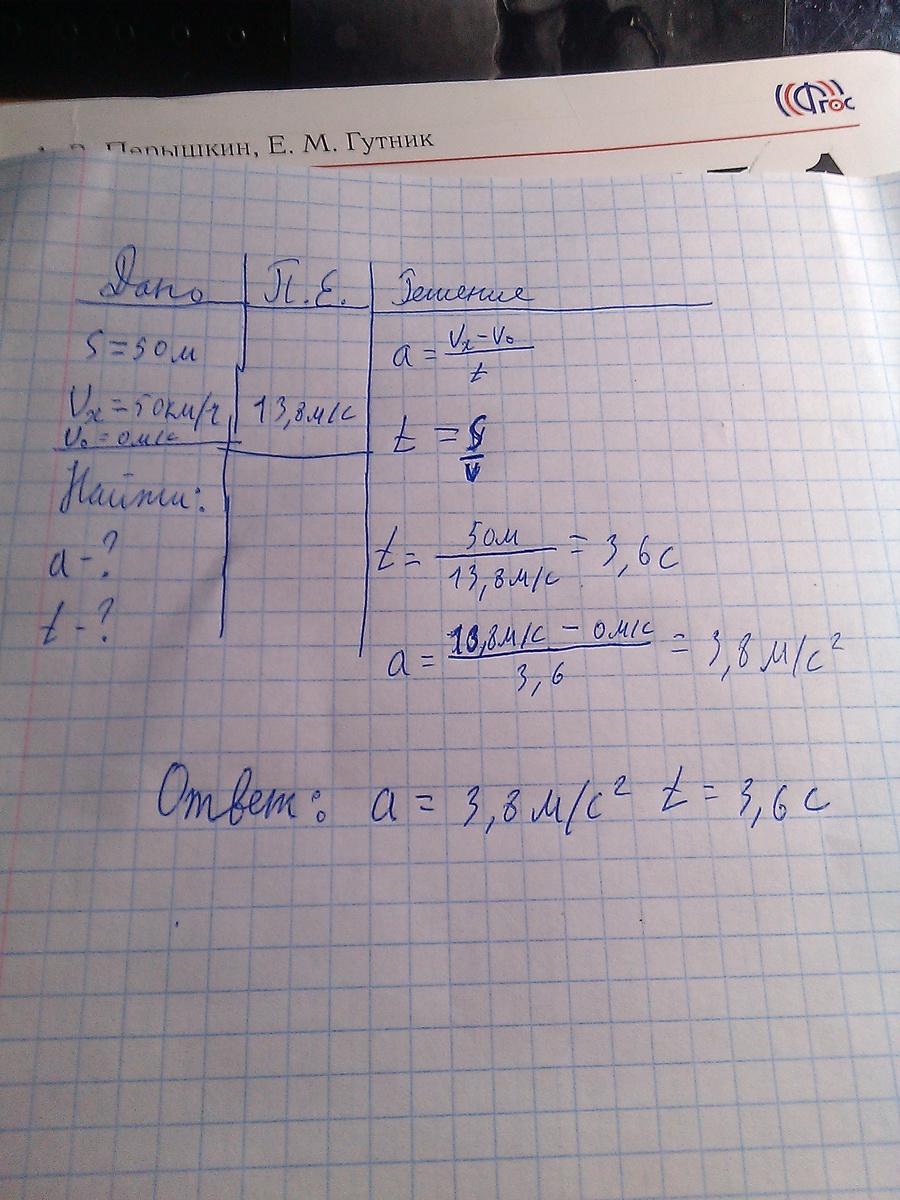 ФГОС
Перышкин, Е. М. Гутник
Дано П.Е. Решение
S = 50м
a = Vx - V₀ / t
Vx = 50км/ч 13,8м/с
V₀ = 0м/с
t = S / V
Найти:
a - ?
t = 50м / 13,8м/с = 3,6с
t - ?
a = 13,8м/с - 0м/с / 3,6 = 3,8м/с²
Ответ: a = 3,8м/с² t = 3,6с